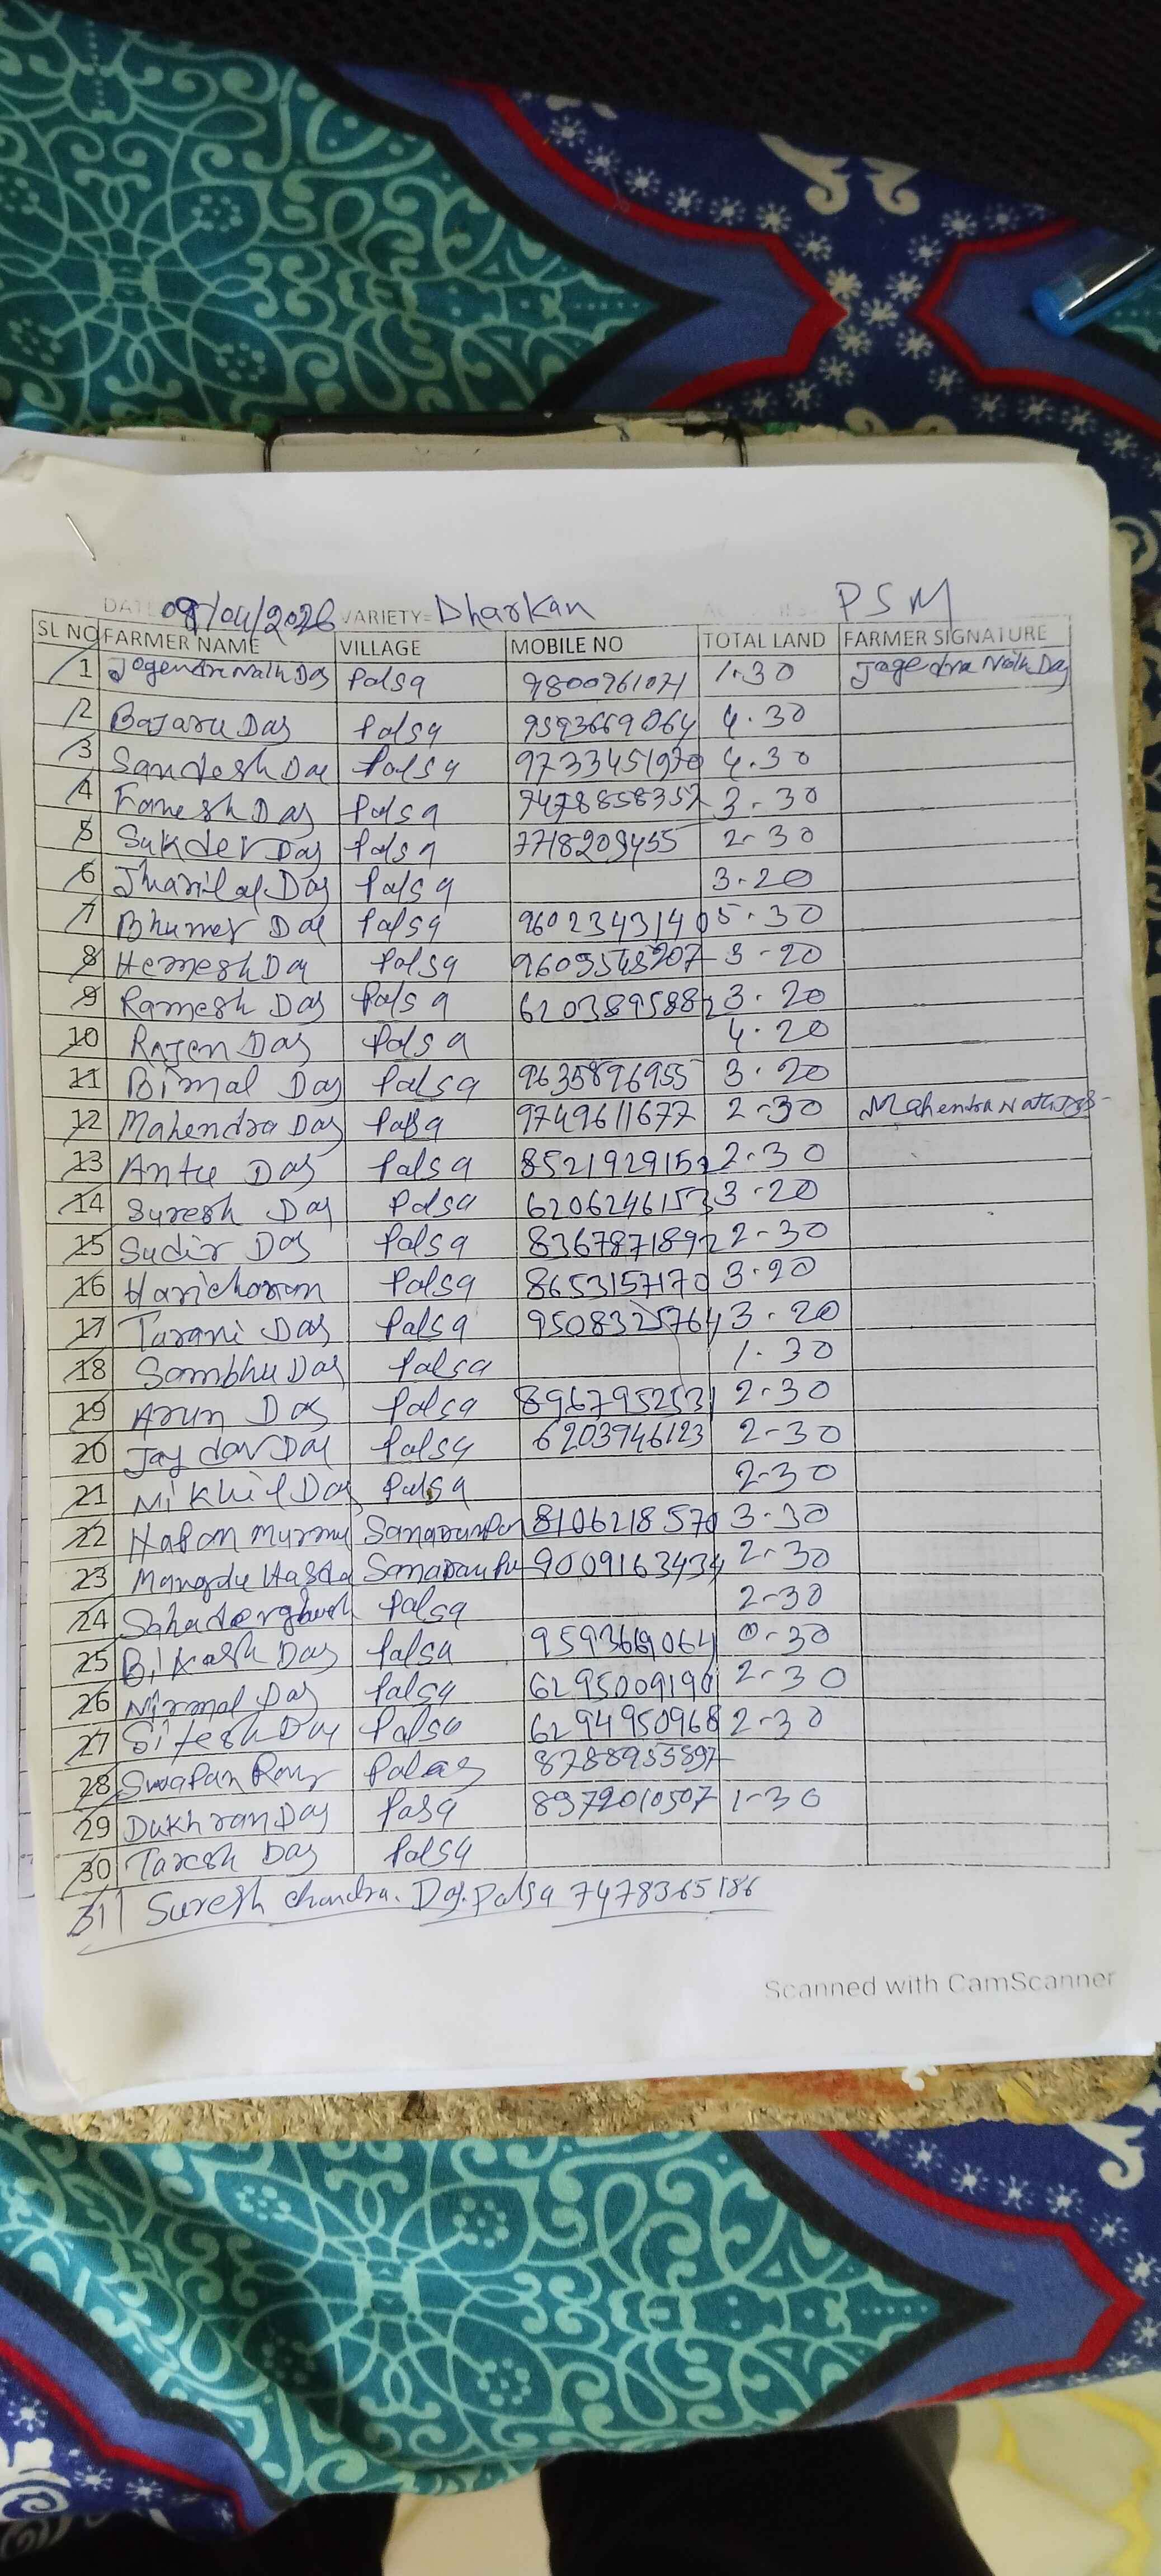 DATE 09/04/2026 VARIETY= Dharkan PSM
SL NO FARMER NAME VILLAGE MOBILE NO TOTAL LAND FARMER SIGNATURE
1 Jogendra Nath Das Palsa 9800961071 1.30 Jagendra Nath Das
2 Bajaru Das Palsa 9593669064 4.30
3 Sandesh Das Palsa 9733451970 4.30
4 Fanesh Das Palsa 7478858357 3-30
5 Sukdev Das Palsa 7718209455 2-30
6 Jharilal Das Palsa 3-20
7 Bhumer Das Palsa 9602343140 5.30
8 Hemesh Das Palsa 9609548207 3-20
9 Ramesh Das Palsa 6203895882 3.20
10 Rajen Das Palsa 4.20
11 Bimal Das Palsa 9635896955 3.20
12 Mahendra Das Palsa 9749611677 2-30 Mahendra Nath Das
13 Antu Das Palsa 8521929152 2-30
14 Suresh Das Palsa 6206246153 3-20
15 Sudir Das Palsa 8367871892 2-30
16 Haricharan Palsa 8653157170 3-20
17 Tarani Das Palsa 9508325764 3-20
18 Sambhu Das Palsa 1.30
19 Arun Das Palsa 8967952531 2-30
20 Jay dav Das Palsa 6203946123 2-30
21 Nikhil Das Palsa 2-30
22 Hapan Murmu 8106218570 3-30
23 Mangdu Hasda 9009163434 2-30
24 Palsa 2-30
25 Bikash Das Palsa 9593669064 0-30
26 Nirmal Das Palsa 6295009190 2-30
27 Sitesh Das Palsa 6294950968 2-30
28 Swapan Roy Palsa 8788955897
29 Dukhran Das Pasa 8972010507 1-30
30 Taresh Das Palsa
31 Suresh chandra. Das. Palsa 7478365186
Scanned with CamScanner